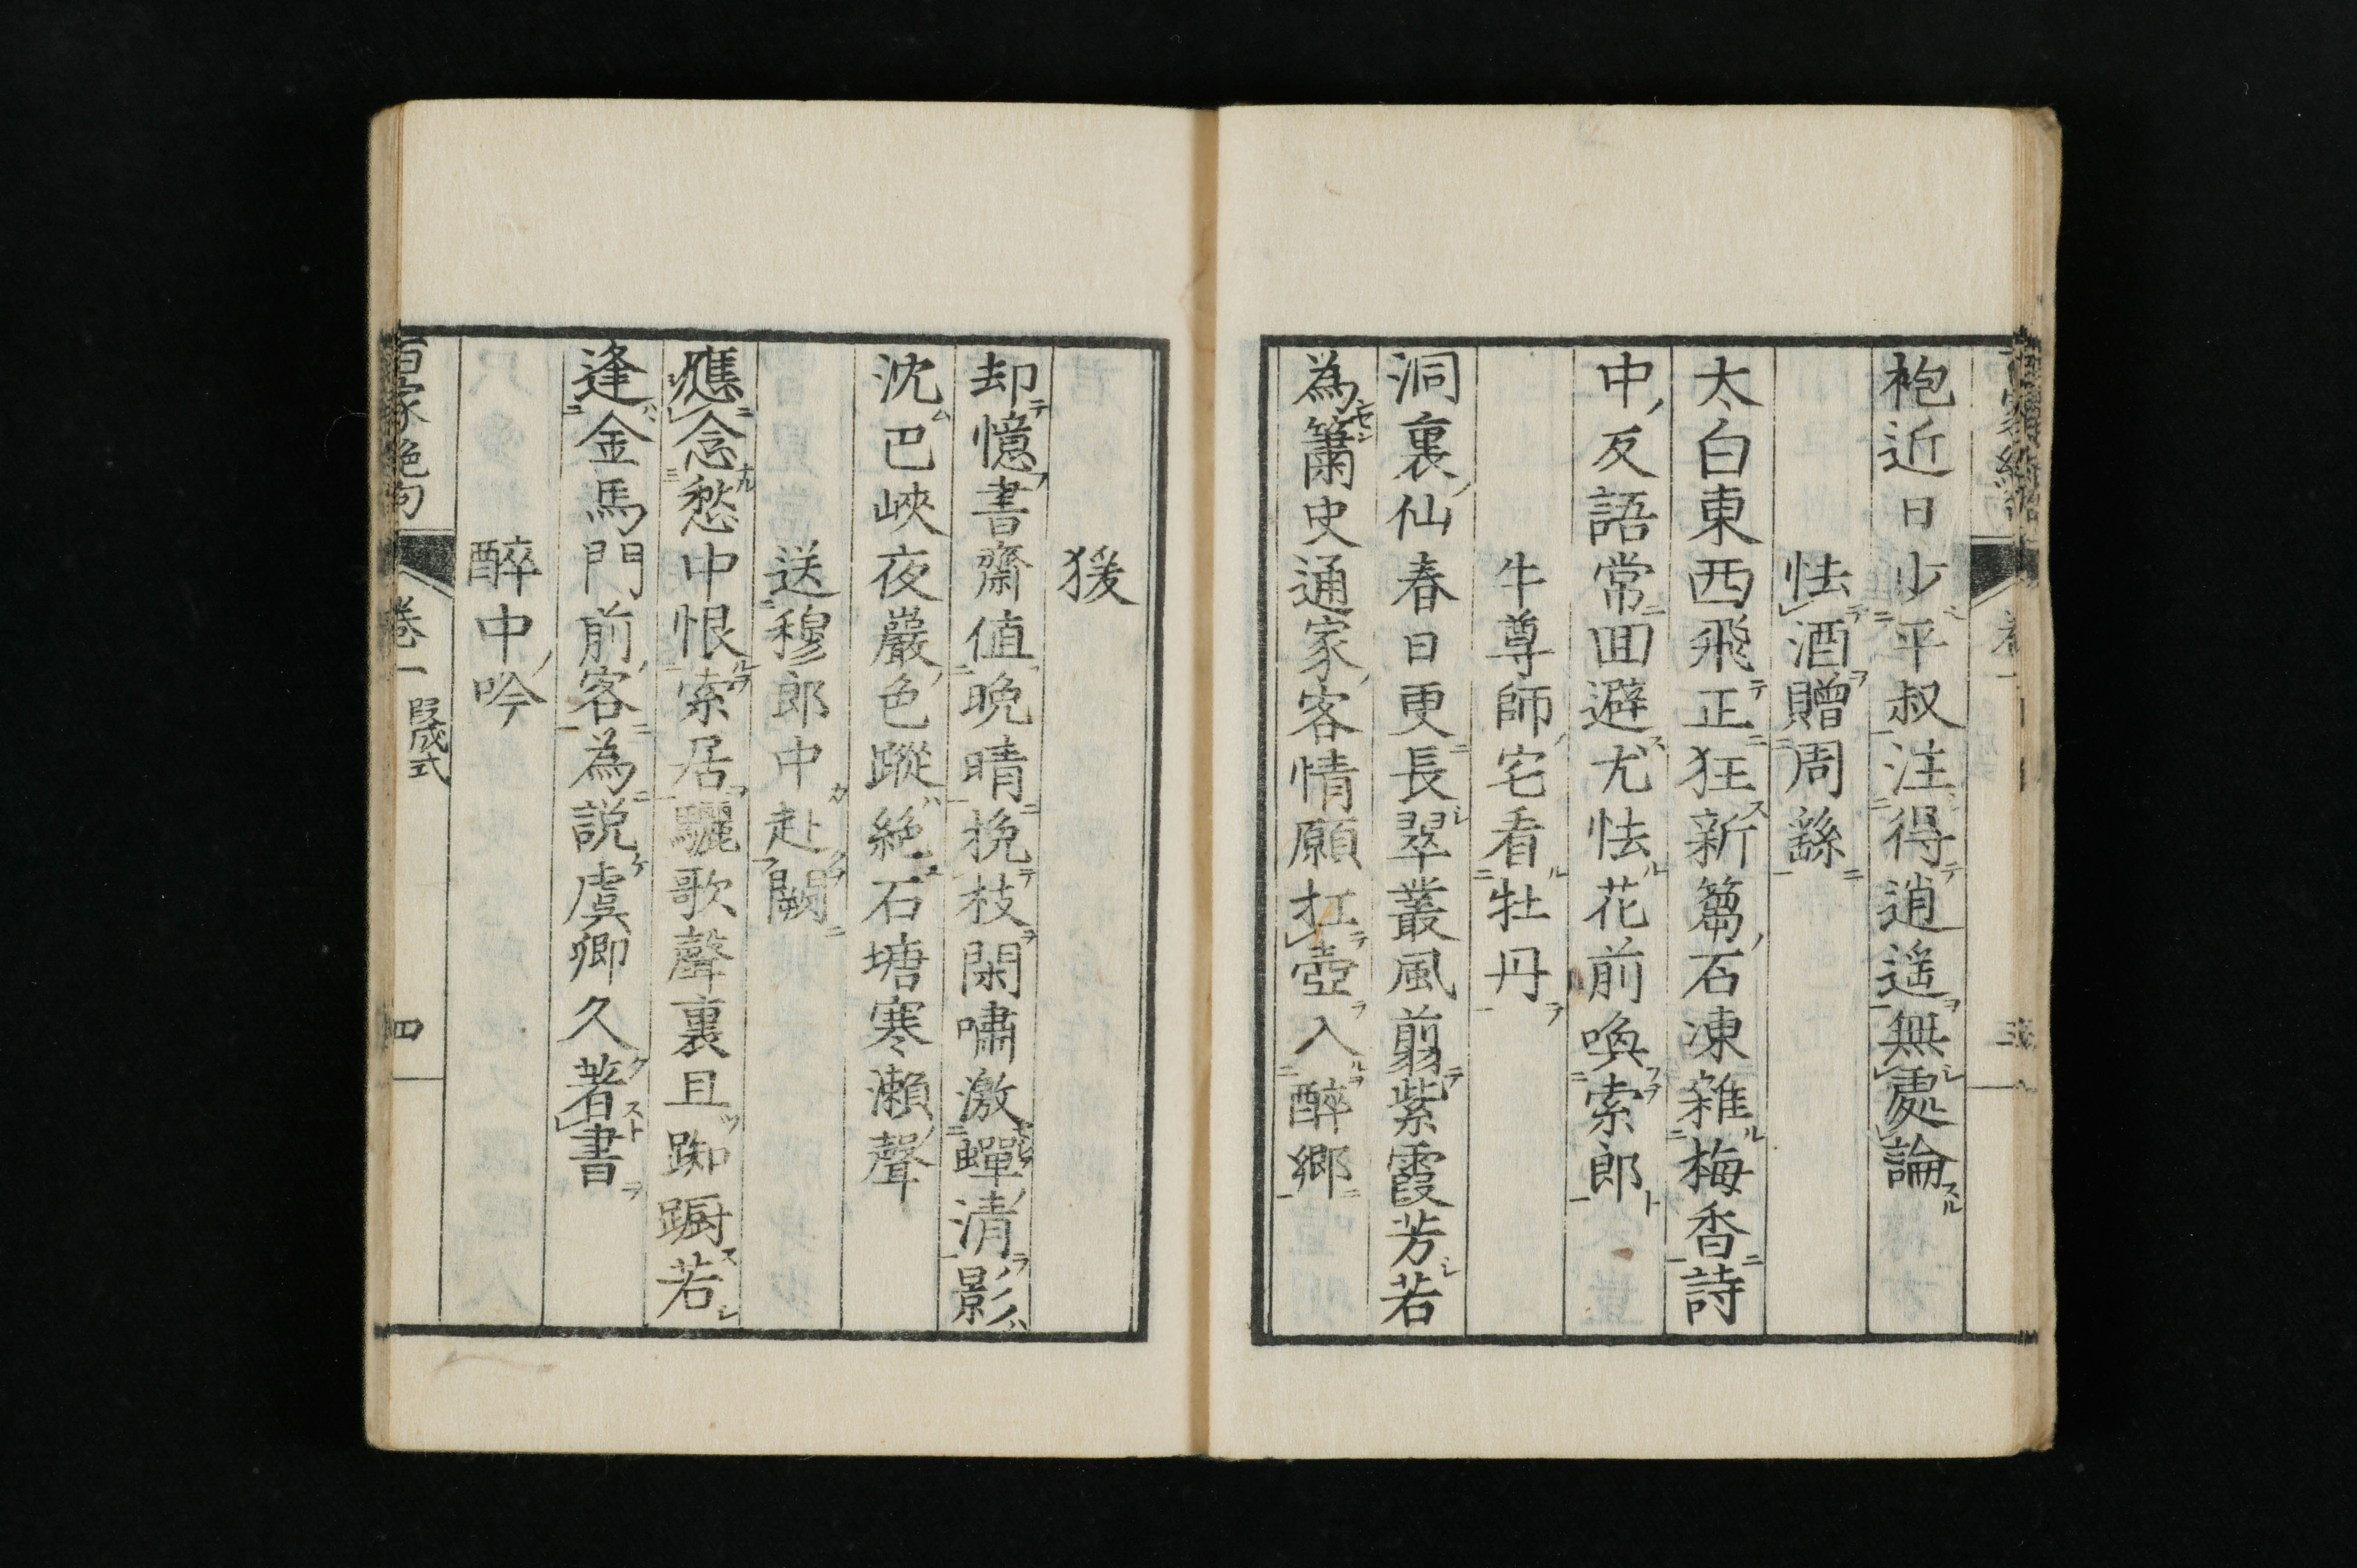 袍近日少平叔注得逍遙無處論
怯酒贈周繇
太白東西飛正狂新蒭石凍雜梅香詩
中反語常回避尤怯花前喚索郎
牛尊師宅看牡丹
洞裏仙春日更長翠叢風翦紫霞芳若
為簫史通家客情願扛壺入醉郷
猨
却憶書齋值晚晴挽枝閑嘯激蟬清影
沈巴峽夜巖色蹤絕石塘寒瀨聲
送穆郎中赴闕
應念愁中恨索居驪歌聲裏且踟躕若
逢金馬門前客為說虞卿久著書
醉中吟
百家絕句 卷一 段成式 四